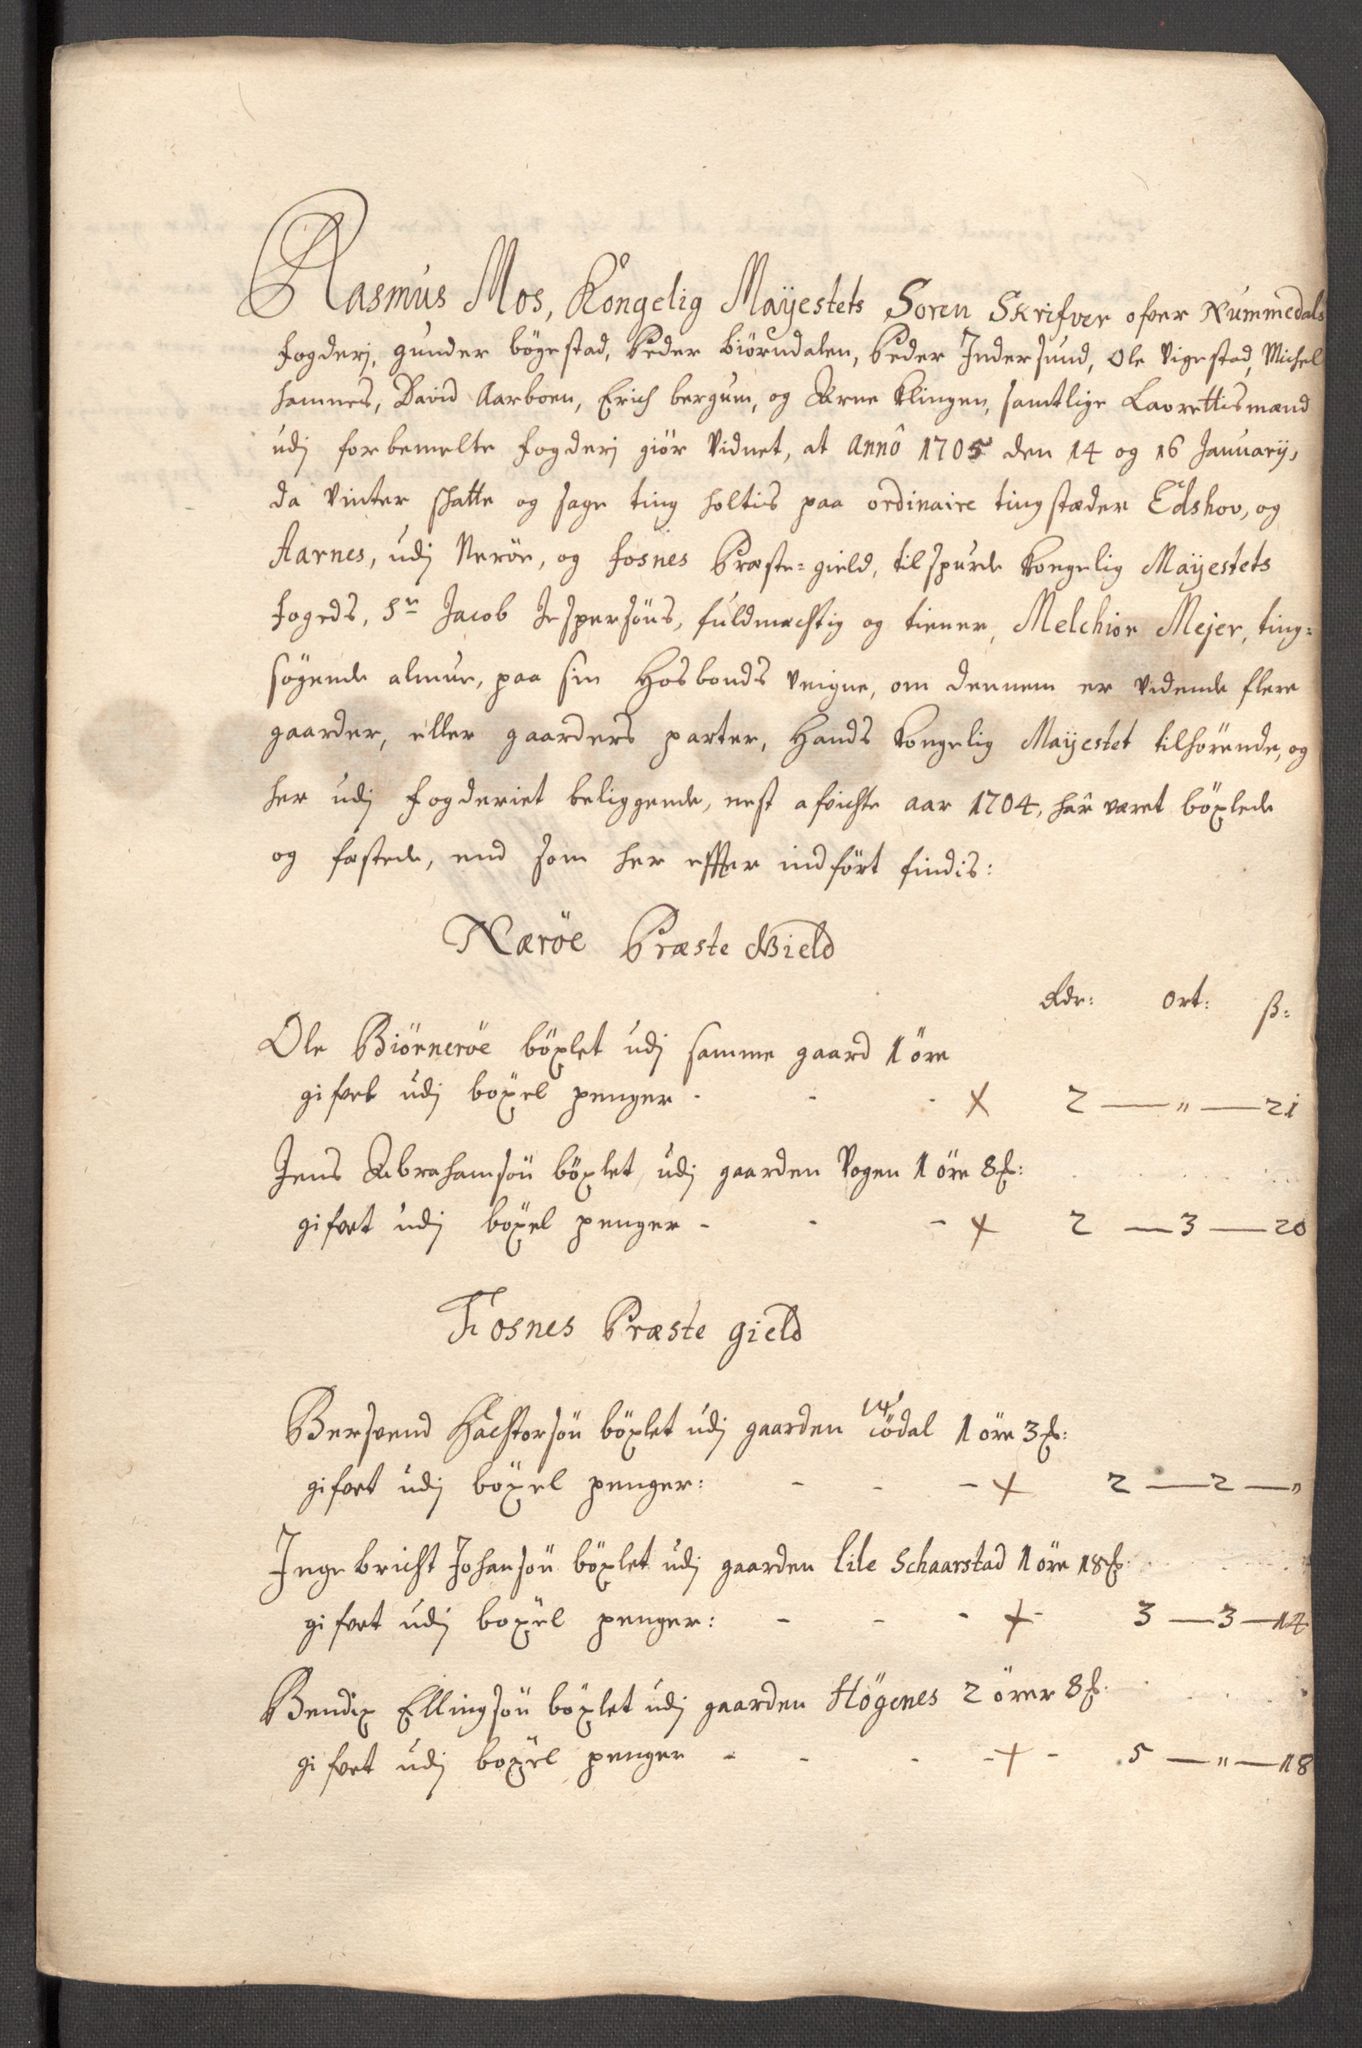 Rasmus Mos, Kongelig Mayestets Soren Skrifver ofver Nummedals
fogderj, gunder bögestad, Peder biörndalen, Peder Indersund, Ole Vigestad, Michel
hamnes, David Aarboen, Erich bergum, og Arne Klingen, samtlige Lavrettismænd
udj forbemelte fogderj giör vidnet, at Annô 1705 den 14 og 16 Januarij,
da vinter skatte og sage ting holtis paa ordinaire tingstæder Edshov, og
Aarnes, udj Neröe, og fosnes Præste-gield, tilspurde kongelig Mayestets
fogeds, Sr Jacob Jespersöns, fuldmæctig og tiener, Melchior Mejer, ting-
søgende almue, paa sin Hosbonds veigne, om dennem er vidende flere
gaarder, eller gaarders parter, Hands kongelig Mayestet tilhörende, og
her udj fogderiet beliggende, nest afvichte aar 1704, har været böxlede
og fæstede, end som her effter indfört findis:
Næröe Præste Gield
Rdr: ort: ß:
Ole Biörneröe böxlet udj samme gaard 1 öre
gifvet udj böxel penger - - - x 2 — " — 21
Jens Abrahamsön böxlet udj gaarden Vogen 1 öre 8 ß:
gifvet udj böxel penger - - - x 2 — 3 — 20
Fosnes Præste gield
Bersvend Hachtorsön böxlet udj gaarden ödal 1 öre 3 ß:
gifvet udj böxel penger: - - - x 2 — 2 — "
Ingebricht Johansön böxlet udj gaarden lile Schaarstad 1 öre 18 ß:
gifvet udj boxel penger: - - - x - 3 — 3 — 14
Bendix Ellingsön böxlet udj gaarden Högenes 2 örer 8 ß:
gifvet udj boxel penger - - - - x - 5 — " — 18